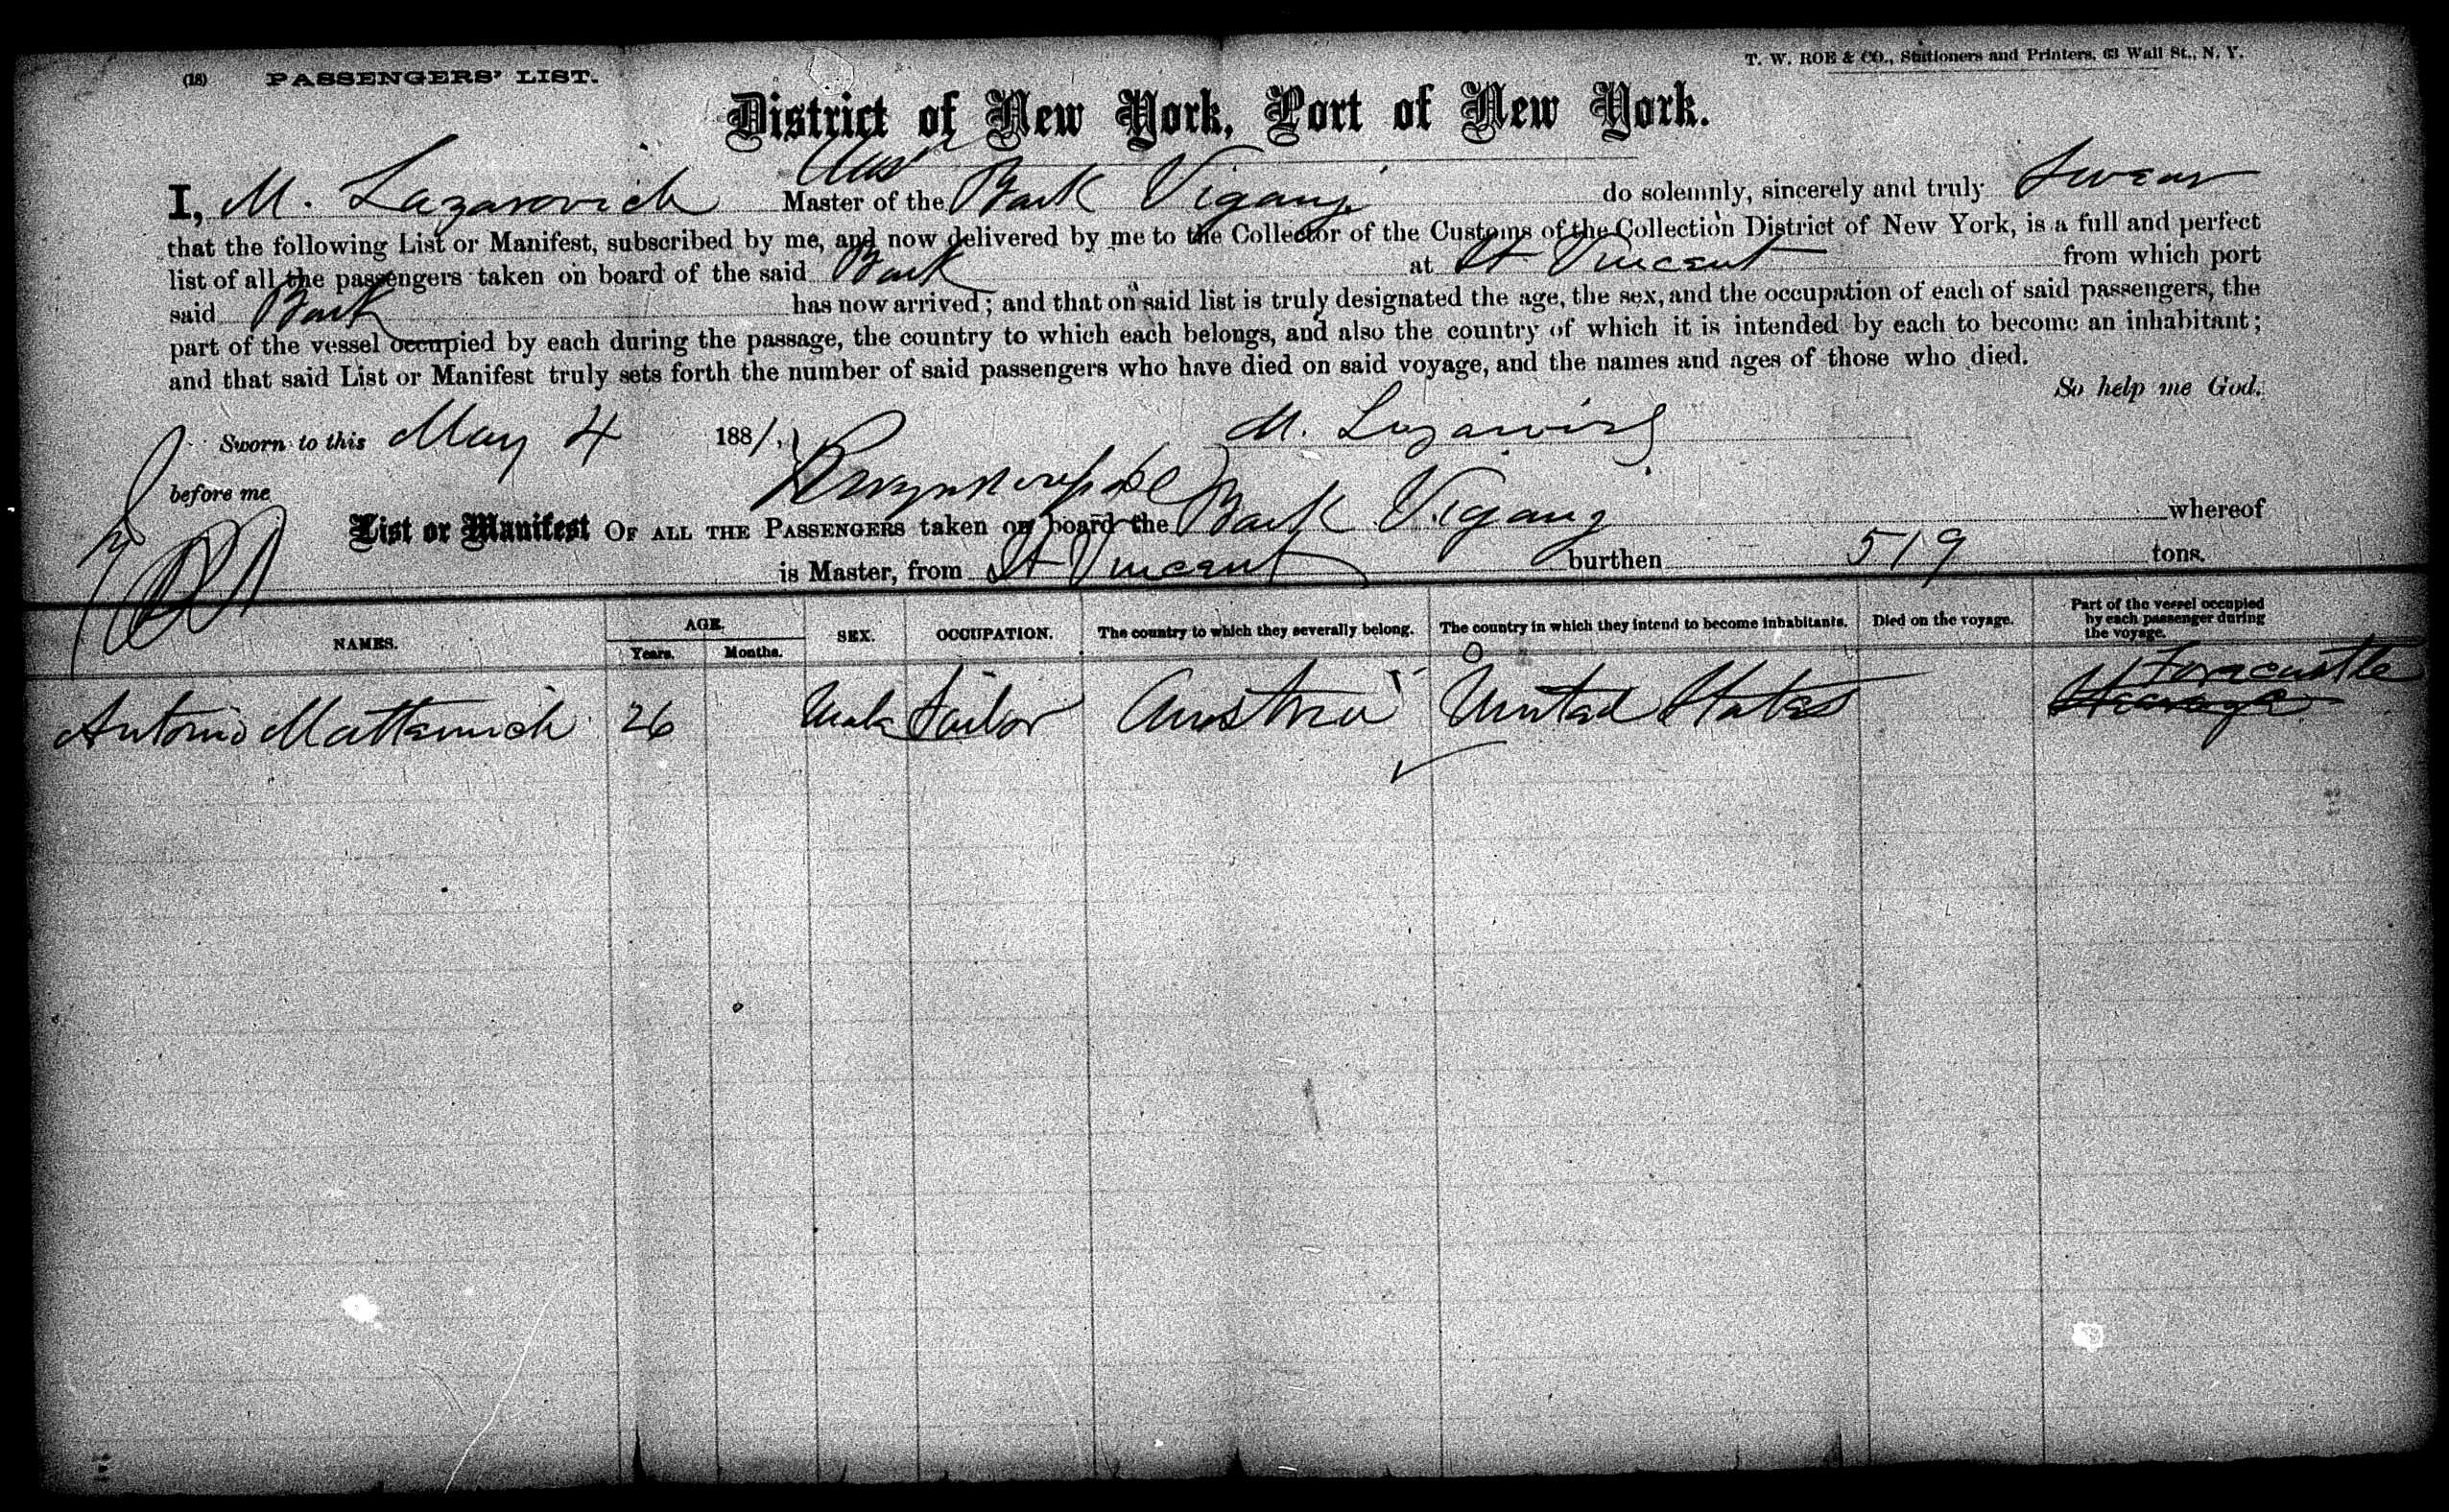 (18) PASSENGERS' LIST.
T. W. ROE & CO., Stationers and Printers, 63 Wall St., N. Y.
District of New York, Port of New York.
I, M. Lazarovich Master of the Bark do solemnly, sincerely and truly Swear
that the following List or Manifest, subscribed by me, and now delivered by me to the Collector of the Customs of the Collection District of New York, is a full and perfect
list of all the passengers taken on board of the said Bark at St Vincent from which port
said Bark has now arrived; and that on said list is truly designated the age, the sex, and the occupation of each of said passengers, the
part of the vessel occupied by each during the passage, the country to which each belongs, and also the country of which it is intended by each to become an inhabitant;
and that said List or Manifest truly sets forth the number of said passengers who have died on said voyage, and the names and ages of those who died.
So help me God.
Sworn to this May 4 1881,
before me
List or Manifest OF ALL THE PASSENGERS taken on board the Bark whereof
is Master, from St Vincent burthen 519 tons.
NAMES. AGE. Years. Months. SEX. OCCUPATION. The country to which they severally belong. The country in which they intend to become inhabitants. Died on the voyage. Part of the vessel occupied by each passenger during the voyage.
Forecastle
Antonio 26 Male Austria United States Steerage